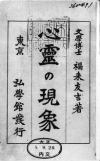 文學博士 福来友吉著
心靈の現象
東京 弘學館發行